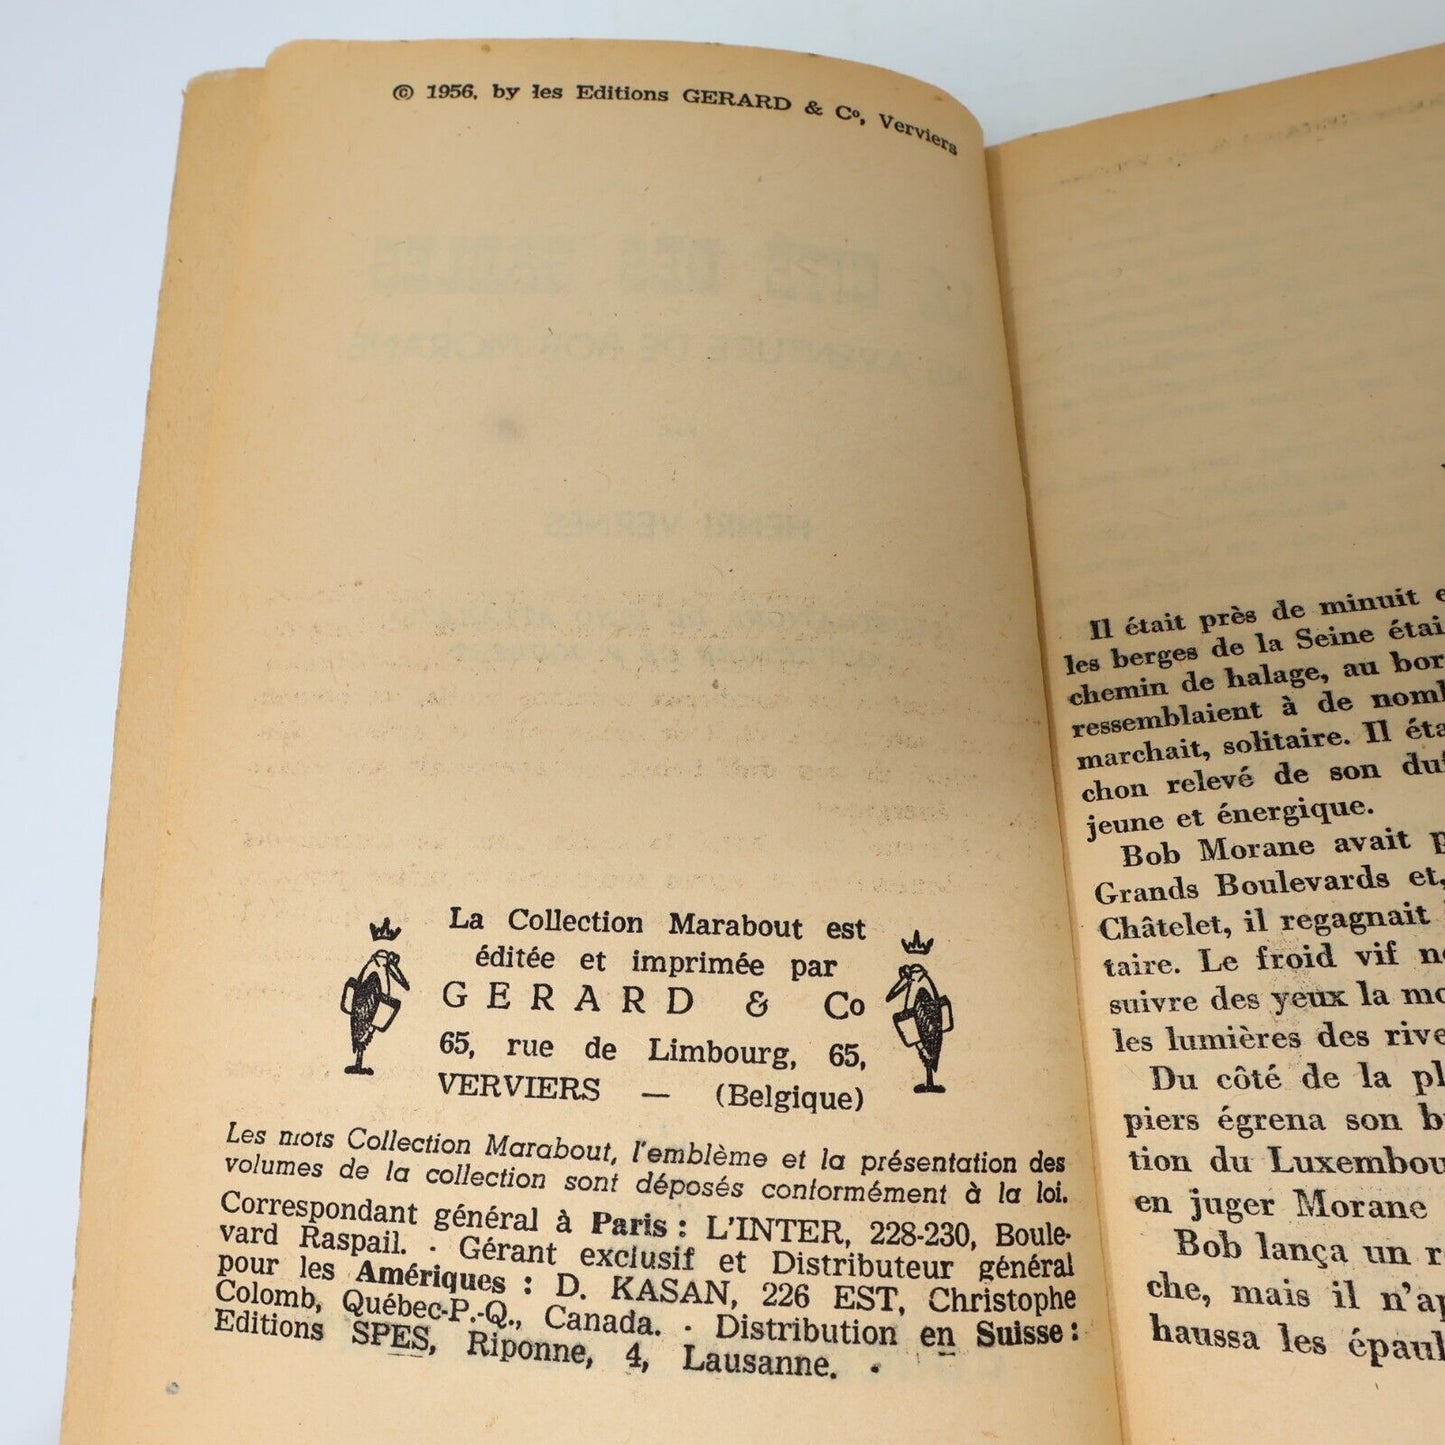 © 1956, by les Editions GERARD & Cº, Verviers
CITÉ DES SABLES
AVENTURE DE BOB MORANE
HENRI VERNES
La Collection Marabout est
éditée et imprimée par
GERARD & Co
65, rue de Limbourg, 65,
VERVIERS — (Belgique)
Les mots Collection Marabout, l'emblème et la présentation des
volumes de la collection sont déposés conformément à la loi.
Correspondant général à Paris : L'INTER, 228-230, Boule-
vard Raspail. · Gérant exclusif et Distributeur général
pour les Amériques : D. KASAN, 226 EST, Christophe
Colomb, Québec-P.-Q., Canada. · Distribution en Suisse :
Editions SPES, Riponne, 4, Lausanne. ·
Il était près de minuit
les berges de la Seine étai
chemin de halage, au bor
ressemblaient à de nom
marchait, solitaire. Il éta
chon relevé de son duf
jeune et énergique.
Bob Morane avait p
Grands Boulevards et,
Châtelet, il regagnait
taire. Le froid vif n
suivre des yeux la mo
les lumières des rive
Du côté de la pl
piers égrena son b
tion du Luxembou
en juger Morane
Bob lança un r
che, mais il n'ap
haussa les épaul